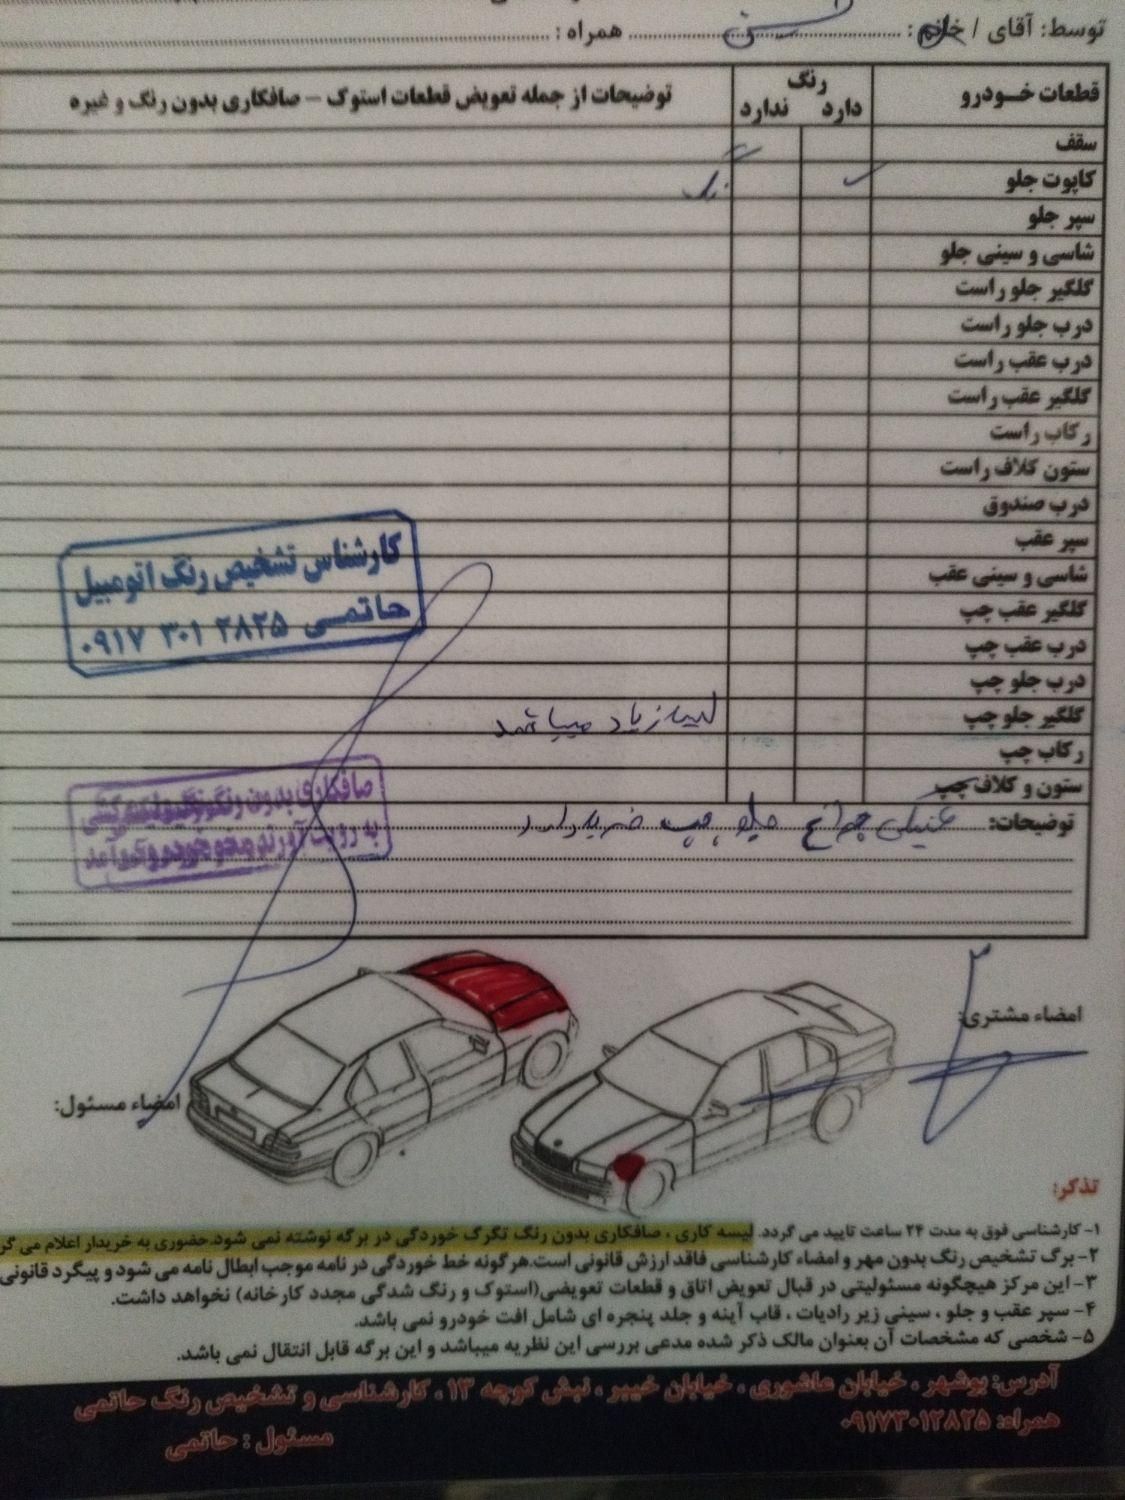 توسط: آقای / خانم: ........ همراه: ........
قطعات خـودرو
رنگ
دارد ندارد
توضیحات از جمله تعویض قطعات استوک – صافکاری بدون رنگ و غیره
سقف
کاپوت جلو ✓
سپر جلو
شاسی و سینی جلو
گلگیر جلو راست
درب جلو راست
درب عقب راست
گلگیر عقب راست
رکاب راست
ستون کلاف راست
درب صندوق
سپر عقب
شاسی و سینی عقب
گلگیر عقب چپ
درب عقب چپ
درب جلو چپ
گلگیر جلو چپ زیاد میباشد
رکاب چپ
ستون و کلاف چپ
توضیحات: چراغ جلو چپ ضربه دارد
کارشناس تشخیص رنگ اتومبیل
حاتمـی ۲۸۲۵ ۳۰۱ ۰۹۱۷
صافکاری بدون رنگ
امضاء مشتری:
امضاء مسئول:
تذکر:
۱- کارشناسی فوق به مدت ۲۴ ساعت تایید می گردد. لیسه کاری ، صافکاری بدون رنگ تگرگ خوردگی در برگه نوشته نمی شود.حضوری به خریدار اعلام می گر
۲- برگ تشخیص رنگ بدون مهر و امضاء کارشناسی فاقد ارزش قانونی است.هرگونه خط خوردگی در نامه موجب ابطال نامه می شود و پیگرد قانونی
۳- این مرکز هیچگونه مسئولیتی در قبال تعویض اتاق و قطعات تعویضی(استوک و رنگ شدگی مجدد کارخانه) نخواهد داشت.
۴- سپر عقب و جلو ، سینی زیر رادیات ، قاب آینه و جلد پنجره ای شامل افت خودرو نمی باشد.
۵- شخصی که مشخصات آن بعنوان مالک ذکر شده مدعی بررسی این نظریه میباشد و این برگه قابل انتقال نمی باشد.
آدرس: بوشهر ، خیابان عاشوری ، خیابان خیبر ، نبش کوچه ۱۳ ، کارشناسی و تشخیص رنگ حاتمی
همراه: ۰۹۱۷۳۰۱۲۸۲۵
مسئول : حاتمی